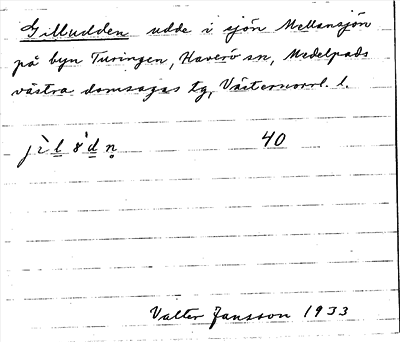 Gilludden udde i sjön Mellansjön
på byn Turingen, Haverö sn, Medelpads
västra domsagas tg, Västernorrl. l.
40
Valter Jansson 1933